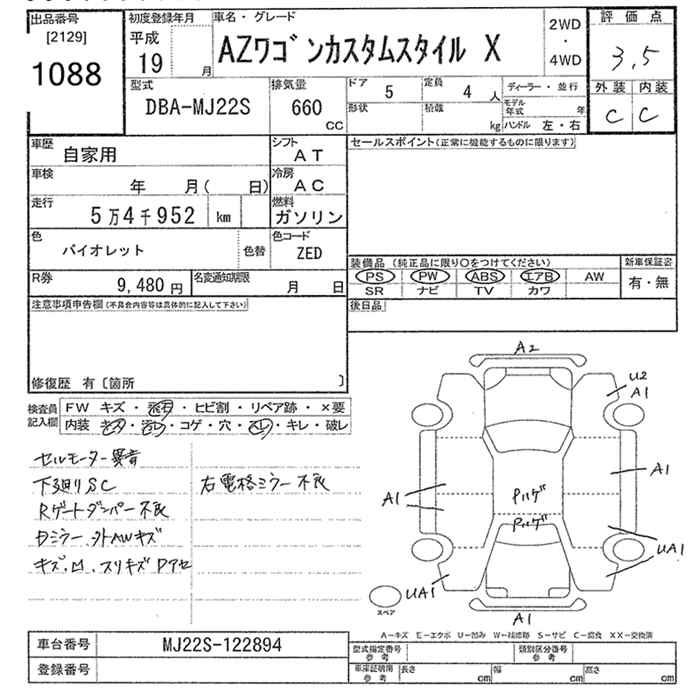 出品番号
[2129]
1088
初度登録年月
平成
19 月
車名・グレード
AZワゴンカスタムスタイル X
2WD
・
4WD
評価点
3,5
外装 内装
C C
型式
DBA-MJ22S
排気量
660
CC
ドア 5
定員 4 人
形状
積載 kg
ディーラー・並行
モデル年式 年
ハンドル 左・右
車歴
自家用
シフト
AT
車検
年 月( 日)
冷房
AC
走行
5万4千952 km
燃料
ガソリン
色
バイオレット
色替
色コード
ZED
R券
9,480円
名変通知期限
月 日
セールスポイント(正常に機能するものに限ります)
装備品 (純正品に限り○をつけてください)
PS PW ABS エアB AW
SR ナビ TV カワ
新車保証書
有・無
注意事項申告欄(不具合内容等は具体的に記入して下さい)
後日品
修復歴 有〔箇所 〕
検査員
記入欄
FW キズ・飛石・ヒビ割・リペア跡・×要
内装 キズ・汚レ・コゲ・穴・スレ・キレ・破レ
セルモーター異音
下廻りSC
右電格ミラー不良
Rゲートダンパー不良
Dミラー、外AWキズ
キズ、凹、スリキズ Pアセ
A2
U2
A1
A1
A1
Pハゲ
Pハゲ
UA1
UA1
A1
スペア
A-キズ E-エクボ U-凹み W-補修跡 S-サビ C-腐食 XX-交換済
車台番号
MJ22S-122894
登録番号
型式指定番号
参考
類別区分番号
参考
車庫証明用
参考
長さ cm
幅 cm
高さ cm